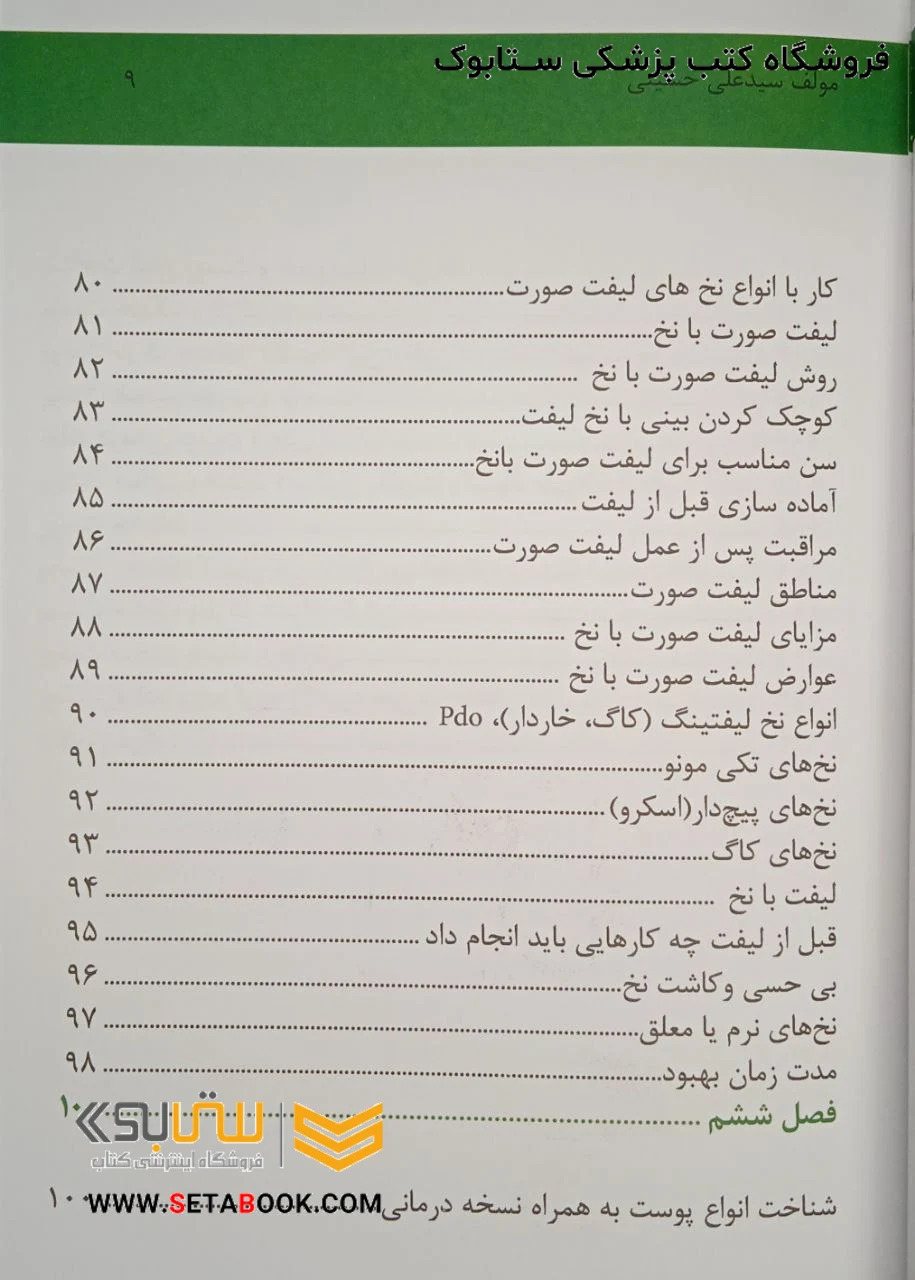 فروشگاه کتب پزشکی ستابوک
مولف سیدعلی حسینی ۹
کار با انواع نخ های لیفت صورت ........ ۸۰
لیفت صورت با نخ ........ ۸۱
روش لیفت صورت با نخ ........ ۸۲
کوچک کردن بینی با نخ لیفت ........ ۸۳
سن مناسب برای لیفت صورت بانخ ........ ۸۴
آماده سازی قبل از لیفت ........ ۸۵
مراقبت پس از عمل لیفت صورت ........ ۸۶
مناطق لیفت صورت ........ ۸۷
مزایای لیفت صورت با نخ ........ ۸۸
عوارض لیفت صورت با نخ ........ ۸۹
انواع نخ لیفتینگ (کاگ، خاردار)، Pdo ........ ۹۰
نخ‌های تکی مونو ........ ۹۱
نخ‌های پیچ‌دار(اسکرو) ........ ۹۲
نخ‌های کاگ ........ ۹۳
لیفت با نخ ........ ۹۴
قبل از لیفت چه کارهایی باید انجام داد ........ ۹۵
بی حسی وکاشت نخ ........ ۹۶
نخ‌های نرم یا معلق ........ ۹۷
مدت زمان بهبود ........ ۹۸
فصل ششم ........
ستابوک
فروشگاه اینترنتی کتاب
شناخت انواع پوست به همراه نسخه درمانی ........ ۱۰۰
WWW.SETABOOK.COM